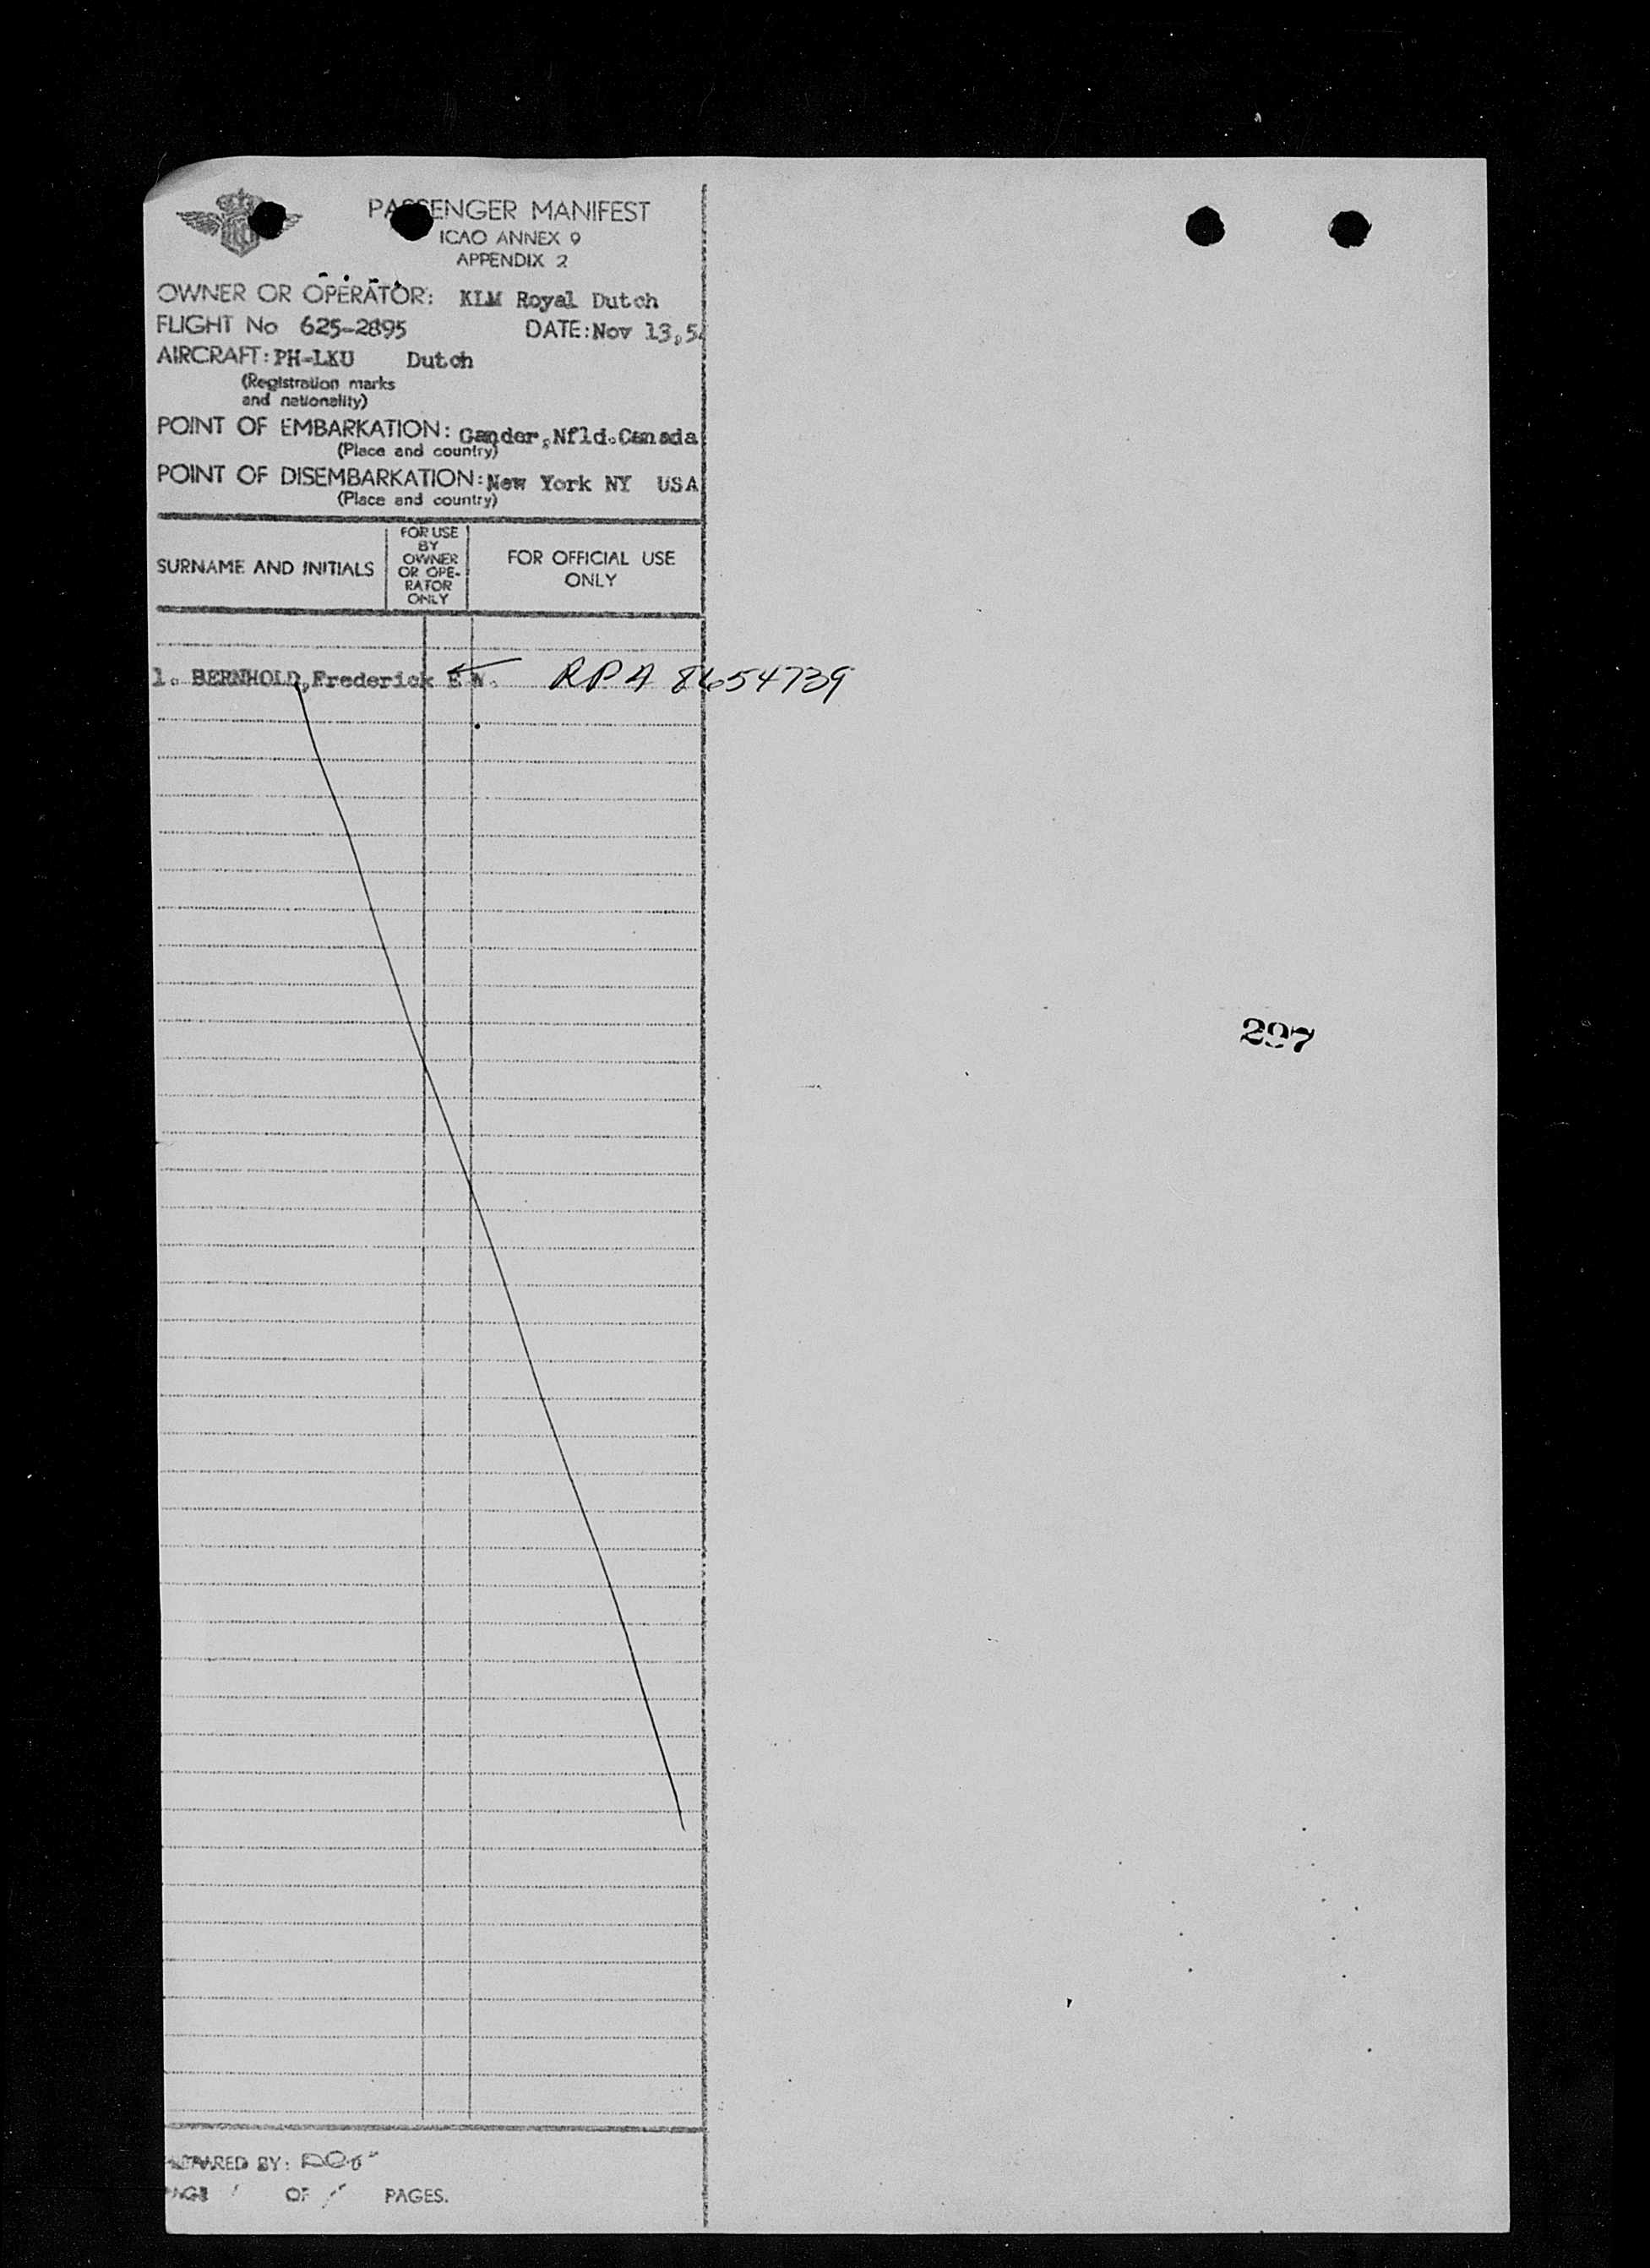 PASSENGER MANIFEST
ICAO ANNEX 9
APPENDIX 2
OWNER OR OPERATOR: KLM Royal Dutch
FLIGHT No 625-2895 DATE: Nov 13,54
AIRCRAFT: PH-LKU Dutch
(Registration marks
and nationality)
POINT OF EMBARKATION: Gander, Nfld. Canada
(Place and country)
POINT OF DISEMBARKATION: New York NY USA
(Place and country)
SURNAME AND INITIALS
FOR USE
BY
OWNER
OR OPE-
RATOR
ONLY
FOR OFFICIAL USE
ONLY
1. BERNHOLD, Frederick E W. RPA 8654739
297
PREPARED BY:
PAGE 1 OF 1 PAGES.